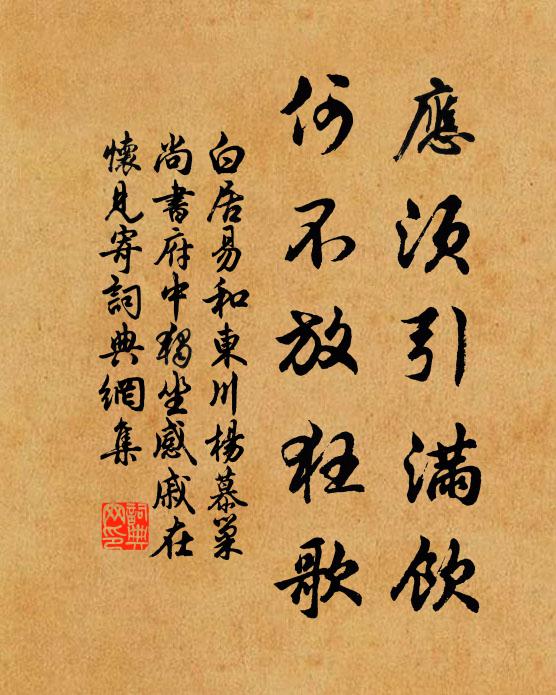 應須引滿飲
何不放狂歌
白居易和東川楊慕巢
尚書府中獨坐感戚在
懷見寄詞典網集
詞典
网印